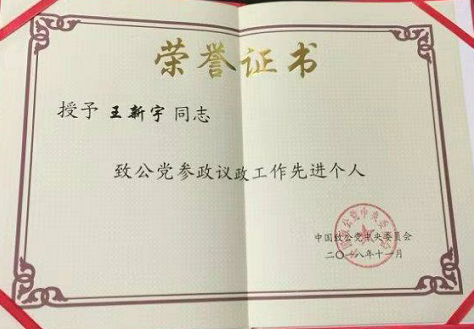 荣誉证书
授予 王新宇 同志
致公党参政议政工作先进个人
中国致公党中央委员会
二〇一八年十一月